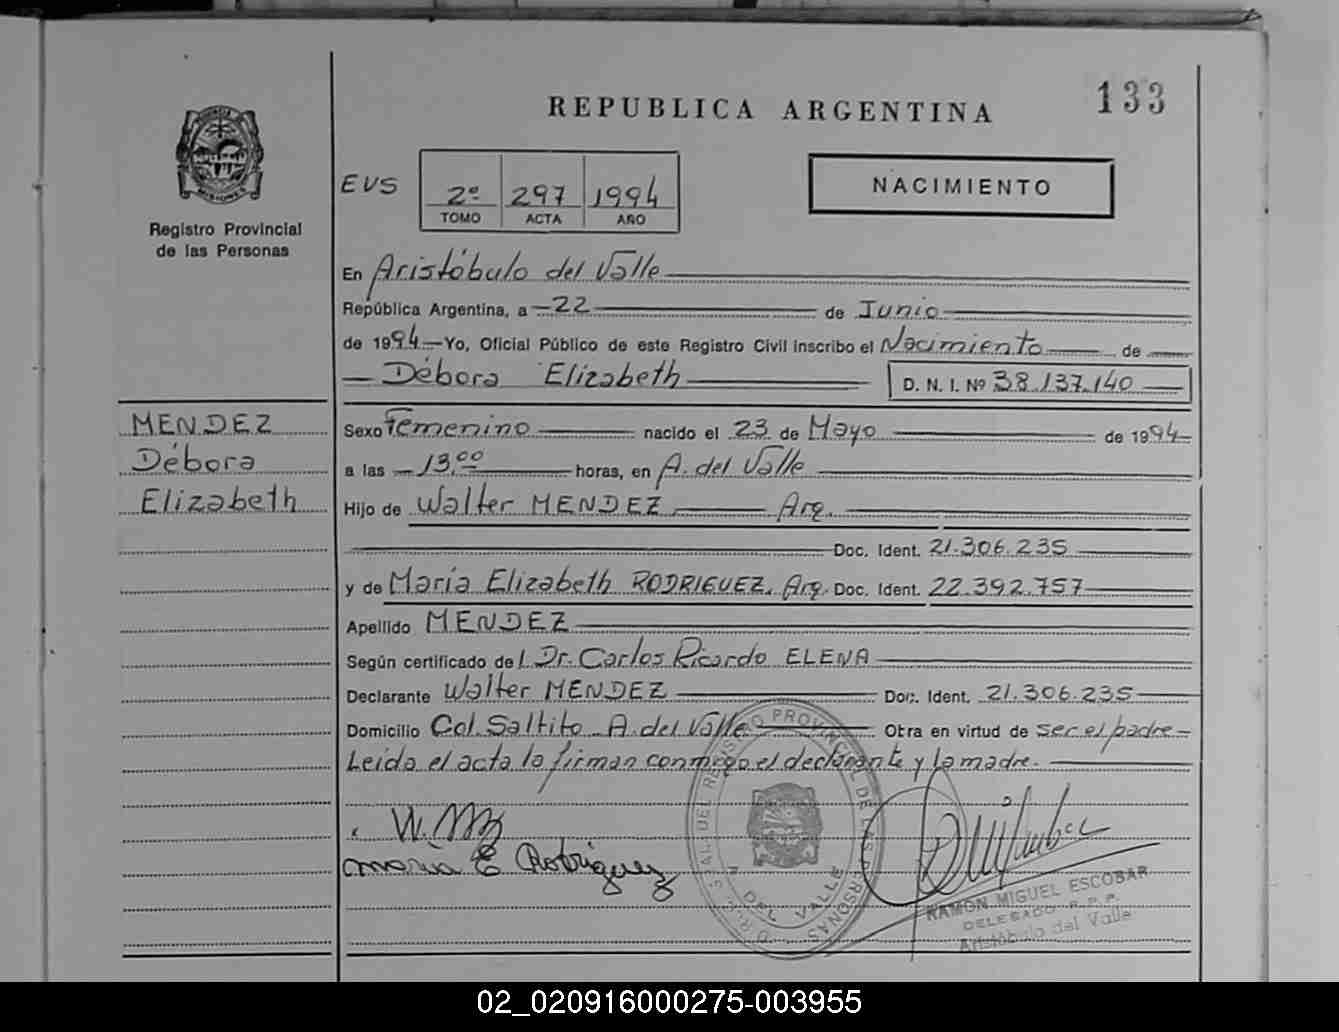 REPUBLICA ARGENTINA
133
Registro Provincial
de las Personas
EVS
2º 297 1994
TOMO ACTA AÑO
NACIMIENTO
En Aristóbulo del Valle
República Argentina, a 22 de Junio
de 1994 Yo, Oficial Público de este Registro Civil inscribo el Nacimiento de
Débora Elizabeth D. N. I. Nº 38.137.140
MENDEZ
Débora
Elizabeth
Sexo Femenino nacido el 23 de Mayo de 1994
a las 13,00 horas, en A. del Valle
Hijo de Walter MENDEZ Arg.
Doc. Ident. 21.306.235
y de María Elizabeth RODRIGUEZ, Arg. Doc. Ident. 22.392.757
Apellido MENDEZ
Según certificado del Dr. Carlos Ricardo ELENA
Declarante Walter MENDEZ Doc. Ident. 21.306.235
Domicilio Col. Saltito - A. del Valle Obra en virtud de ser el padre
Leída el acta la firman conmigo el declarante y la madre.
María E Rodriguez
REGISTRO PROVINCIAL DE LAS PERSONAS
A. DEL VALLE
RAMON MIGUEL ESCOBAR
DELEGADO R.P.P.
Aristóbulo del Valle
02_020916000275-003955